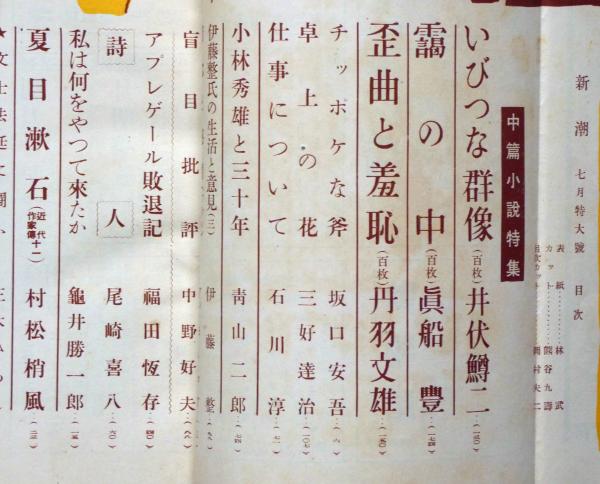 新潮 七月特大號 目次
表紙…………林 武
カット…………熊谷九壽
目次カット…………岡村夫二
中篇小說特集
いびつな群像(百枚)井伏鱒二
靄の中(百枚)眞船豐
歪曲と羞恥(百枚)丹羽文雄
チッポケな斧 坂口安吾
卓上の花 三好達治
仕事について 石川淳
小林秀雄と三十年 靑山二郎
伊藤整氏の生活と意見(三) 伊藤整
盲目批評 中野好夫
アプレゲール敗退記 福田恆存
詩 人 尾崎喜八
私は何をやつて來たか 龜井勝一郎
夏目漱石(近代作家傳十二)村松梢風